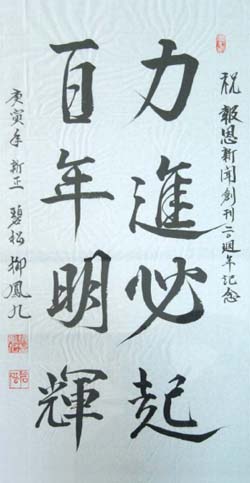 祝 報恩新聞創刊二0週年記念
力進必起
百年明輝
庚寅年 新正 碧松 柳鳳九